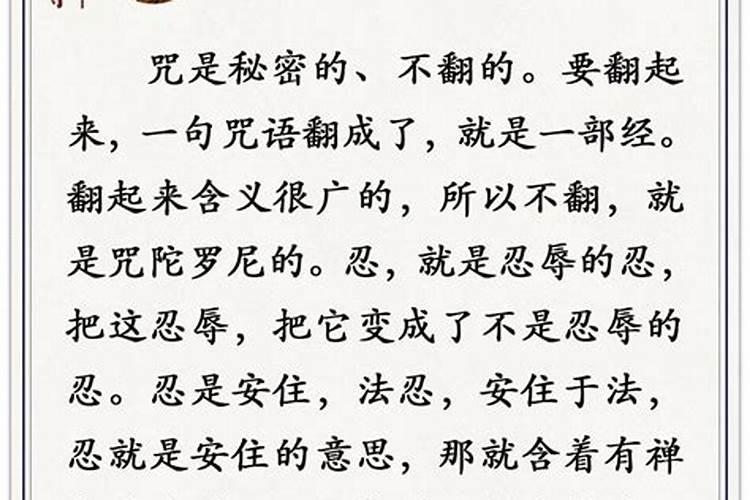 咒是秘密的、不翻的。要翻起
来，一句咒语翻成了，就是一部经。
翻起来含义很广的，所以不翻，就
是咒陀罗尼的。忍，就是忍辱的忍，
把这忍辱，把它变成了不是忍辱的
忍。忍是安住，法忍，安住于法，
忍就是安住的意思，那就含着有禅